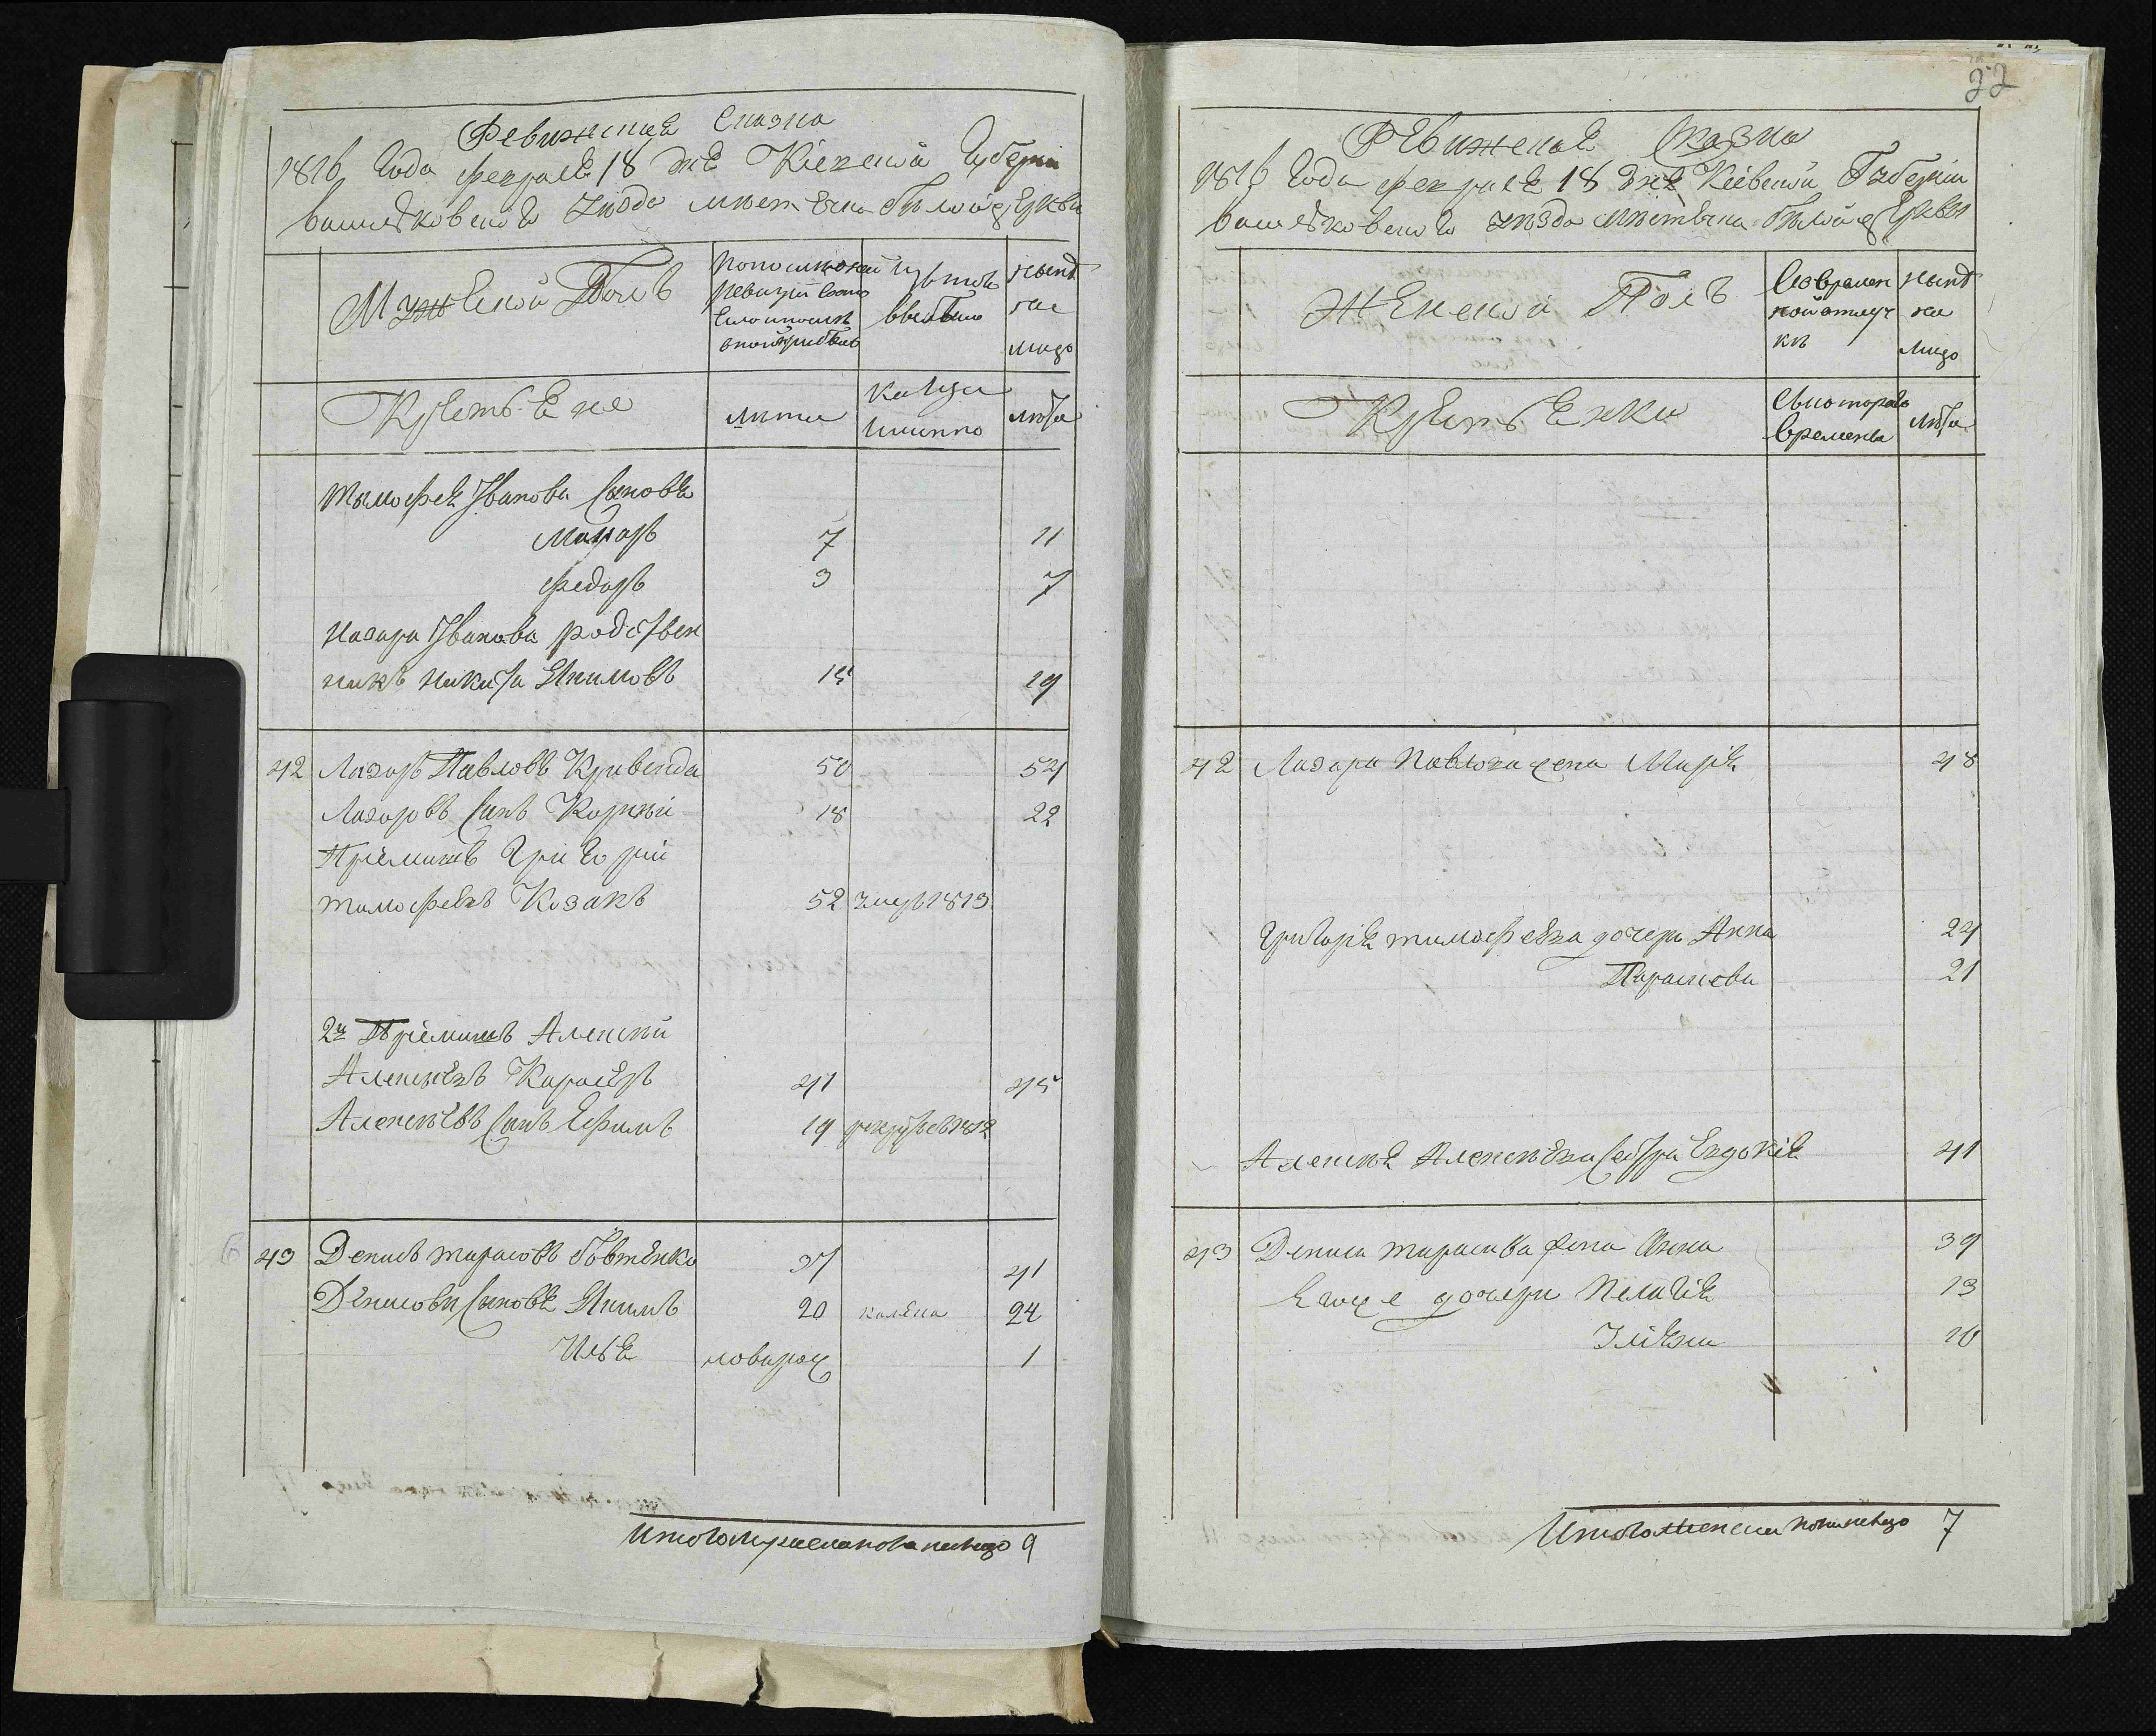 Ревижская Сказка
1816 Года февраля 18 дня Кіевской Губерніи
Васильковского уѣзда мѣстечка Бѣлой Церкви
Мужеской Полъ
По последней
ревизіи состо
яло и после
оной прибыло
Изъ того
выбыло
Нынѣ
на
лицо
Крестьяне
лѣта
Когда
именно
лѣта
Тимофея Иванова Сыновья
Макаръ 7 11
Федоръ 3 7
Назара Иванова родствен
никъ Никита Якимовъ 15 19
42 Лазаръ Павловъ Кривенда 50 54
Лазаровъ Сынъ Корнѣй 18 22
Пріемышъ Григорій
Тимофеевъ Козакъ 52 умеръ 1813
2й Пріемышъ Алексѣй
Алексѣевъ Карасѣръ 41 45
Алексѣевъ Сынъ Ефимъ 19 рекрутъ въ 1812
43 Денисъ Тарасовъ Говтѣнко 37 41
Денисовы Сыновья Якимъ 20 калѣка 24
Илья новорож 1
Итого мужеска пола на лицо 9
22
Ревижская Сказка
1816 Года февраля 18 дня Кіевской Губерніи
Васильковского уѣзда мѣстечка Бѣлой Церкви
Женской Полъ
Во времен
ной отлуч
кѣ
Нынѣ
на
лицо
Крестьянки
Съ котораго
времени
лѣта
42 Лазара Павлова жена Марія 48
Григорія Тимофеева дочери Анна 24
Параскева 21
Алексѣя Алексѣева Сестра Евдокія 41
43 Дениса Тарасова жена Анна 39
Его же дочери Пелагія 13
Уліяна 10
Итого женска пола на лицо 7